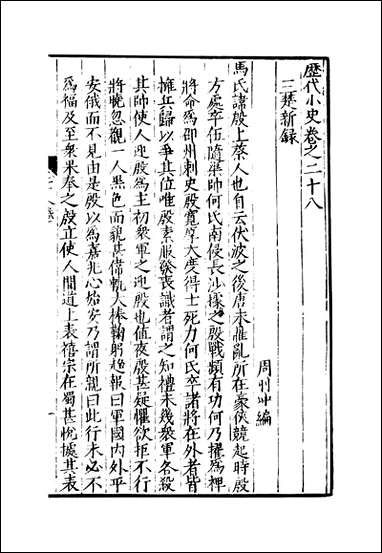 歷代小史卷之二十八
三楚新録
周羽冲編
馬氏諱殷上蔡人也自云伏波之後唐末離亂所在豪俠競起時殷
方處卒伍隨渠帥何氏南侵長沙據之殷戰頻有功何乃擢為裨
將命為邵州刺史殷寬厚大度得士死力何氏卒諸將在外者皆
擁兵歸以爭其位唯殷素服發喪識者謂之知禮未幾衆軍各殺
其帥使人迎殷為主初衆軍之迎殷也值夜殷甚疑懼欲拒不行
將曉忽觀一人黑色而貌甚偉執大棒鞠躬趨報曰軍國内外平
安俄而不見由是殷以為嘉兆心始安乃謂所親曰此行未必不
為福及至衆果奉之殷立使人間道上表禧宗在蜀甚悅據其表